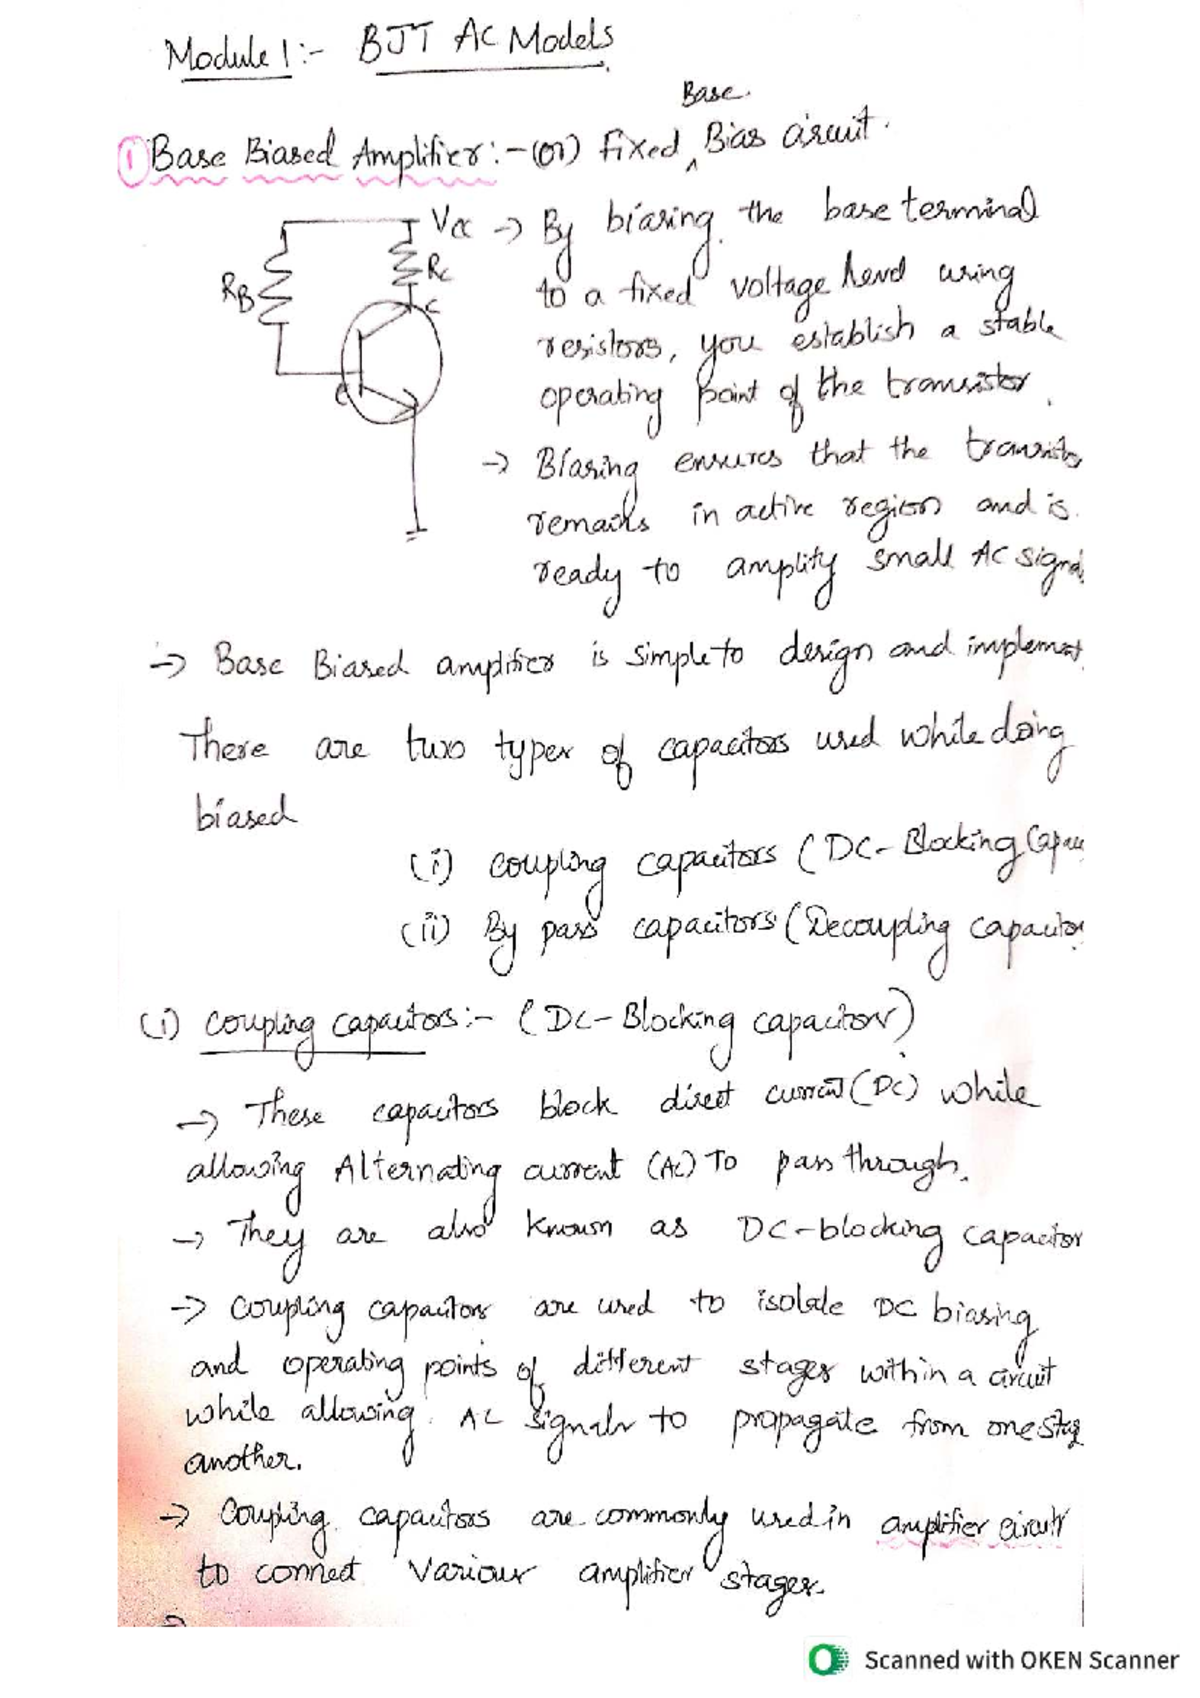 Module 1 :- BJT AC Models
Base.
① Base Biased Amplifier :- (or) fixed ^ Bias circuit.
Vcc → By biasing the base terminal
RB Rc to a fixed voltage level using
C resistors, you establish a stable
operating point of the transistor.
→ Biasing ensures that the transisto
remains in active region and is
ready to amplify small AC signal
→ Base Biased amplifier is simple to design and implement.
There are two types of capacitors used while doing
biased
(i) coupling capacitors (DC-Blocking Capac
(ii) By pass capacitors (Decoupling capacitor
(i) coupling capacitors :- (DC-Blocking capacitor)
→ These capacitors block direct current (DC) while
allowing Alternating current (AC) To pass through.
→ They are also known as DC-blocking capacitor
→ Coupling capacitors are used to isolate DC biasing
and operating points of different stages within a circuit
while allowing AC signals to propagate from one stag
another.
→ Coupling capacitors are commonly used in amplifier circuits
to connect various amplifier stages.
Scanned with OKEN Scanner